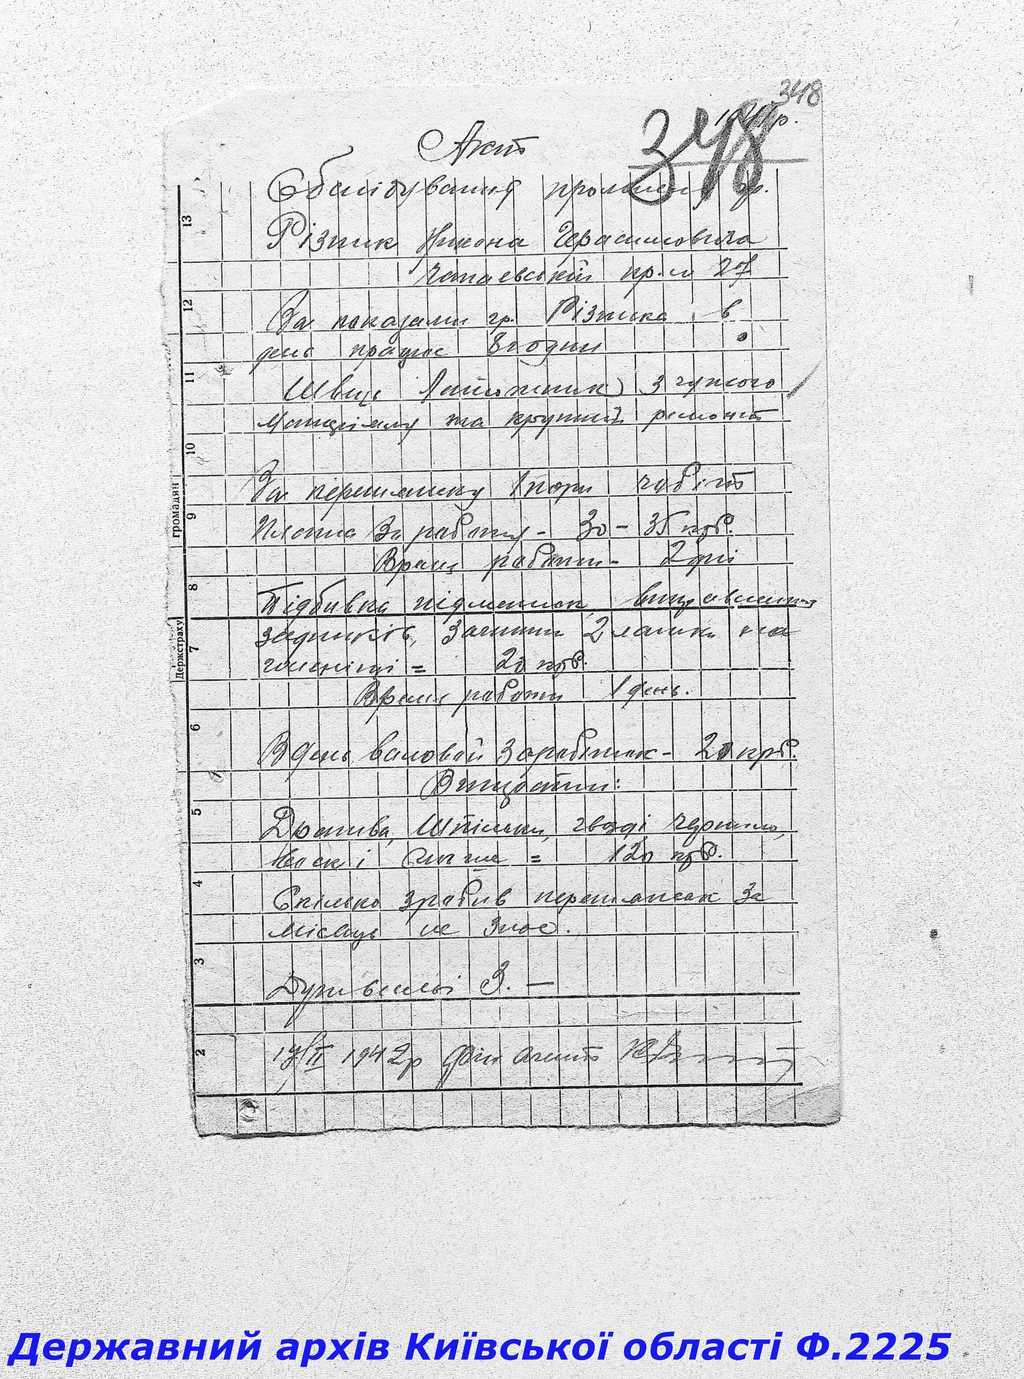 348
348
Акт
Обслідування промисл гр.
Різник Никона Герасимовича
Чапаевський пр. №
За показами гр. Різника в
день працює 8 годин
Швець Латошник з чужого
Матеріалу та крупний ремонт
За перешивку 1 пари чобіт
Платня За работу - 30 - 35 крб.
Время работи - 2 дні
Підбивка підметок, виправлення
задників, Зашити 2 латки на
голениці = 20 крб.
Время работи 1 день.
В день валовой Заработок - 20 крб.
Затрати:
Дратва, Шпільки, гвозді, чернило,
Воск і = 120 крб.
Скілько зробив перешивок За
Місяць не знає.
Душ в семьї 3. —
II 1942 р Фін агент
13
12
11
10
громадян
9
8
Держстраху
7
6
5
4
3
2
Державний архів Київської області Ф.2225